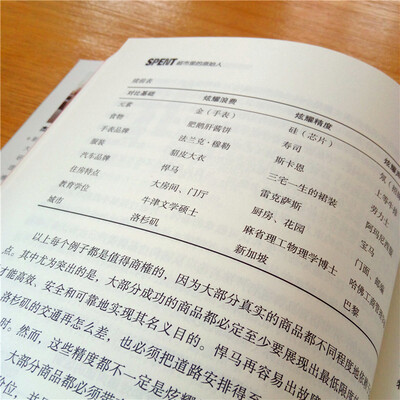 SPENT 超市里的原始人
续前表
对比基础 炫耀浪费 炫耀精度 炫耀
元素 金（手表） 硅（芯片）
食物 肥鹅肝酱饼 寿司
手表品牌 法兰克·穆勒 斯卡恩 劳力士
服装 貂皮大衣 三宅一生的裙装
汽车品牌 悍马 雷克萨斯 宝马
住房特点 大房间、门厅 厨房、花园 门面、
教育学位 牛津文学硕士 麻省理工物理学博士 哈佛工商管
城市 洛杉矶 新加坡 巴黎
以上每个例子都是值得商榷的，因为大部分真实的商品都不同程度地依赖
点。其中尤为突出的是，大部分成功的商品都必定至少要展现出最低限度
才能高效、安全和可靠地实现其名义目的。悍马再容易出故障
洛杉矶的交通再怎么差，也必须把道路安排得至
时。然而，这些精度都不一定是炫耀
大部分商品都必须带
价位，并